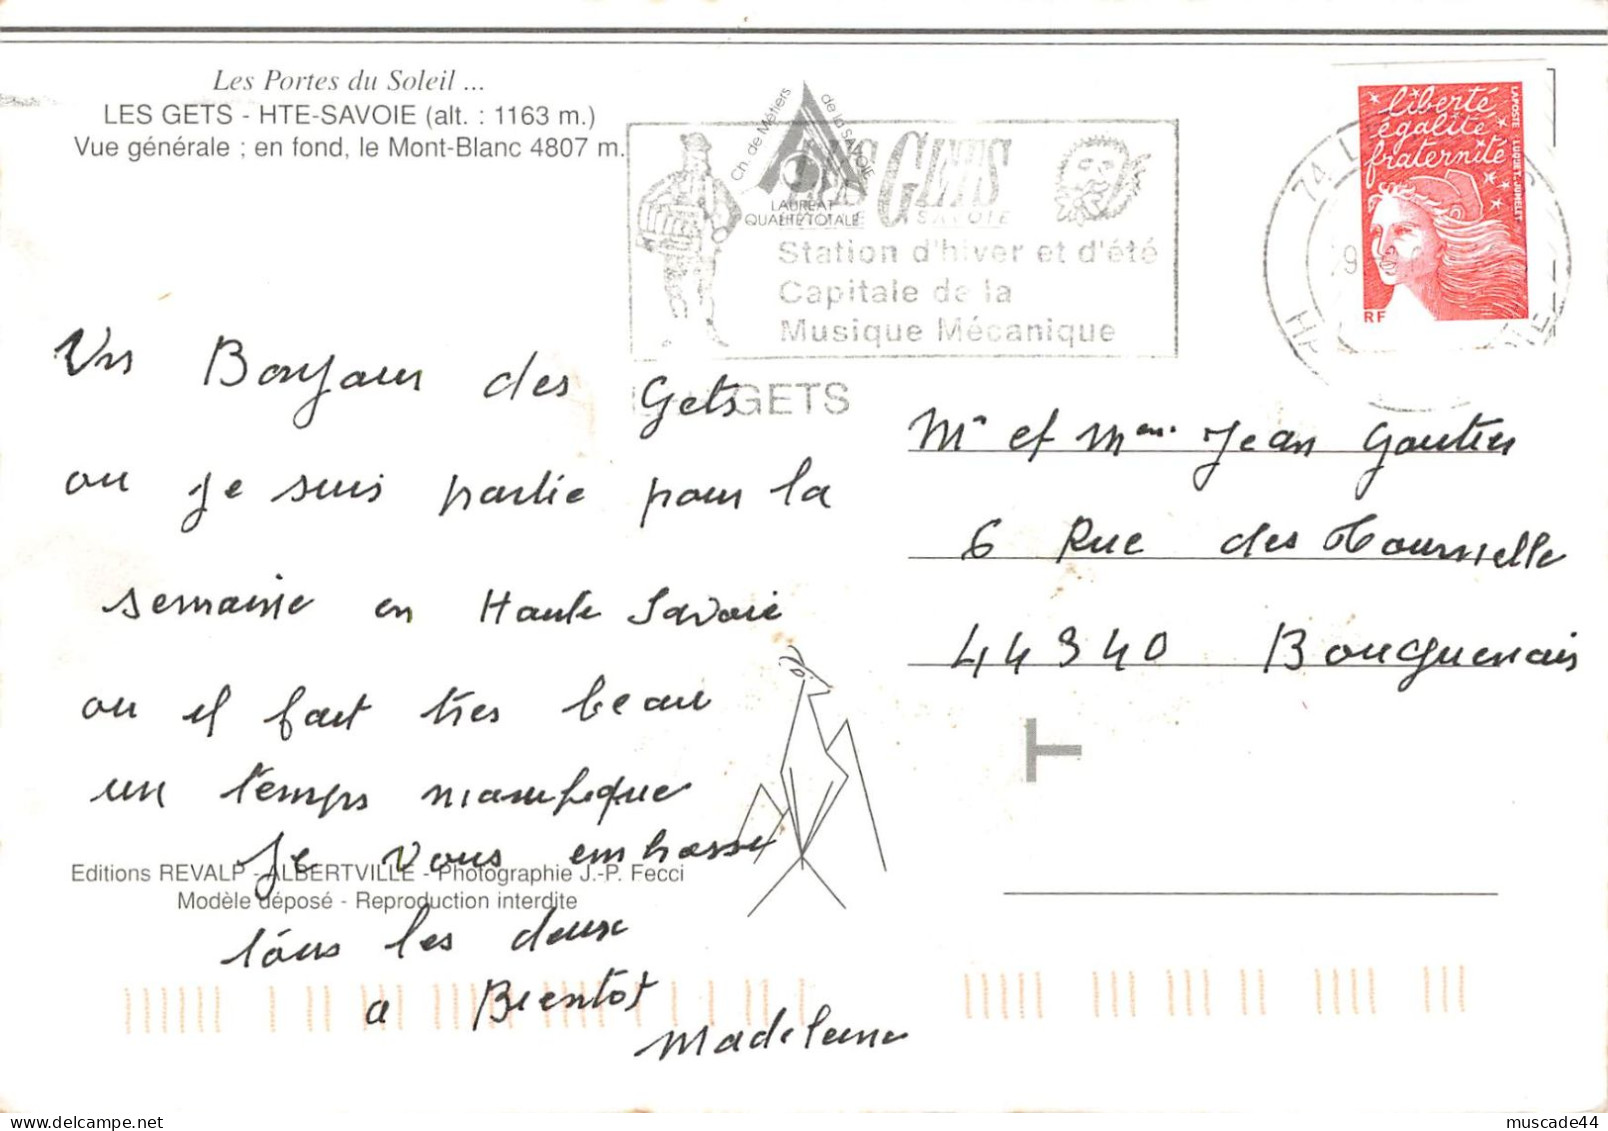 Les Portes du Soleil ...
LES GETS - HTE-SAVOIE (alt. : 1163 m.)
Vue générale ; en fond, le Mont-Blanc 4807 m.
Ch. de Métiers de la SAVOIE
LAURÉAT
QUALITÉ TOTALE
LES GETS
SAVOIE
Station d'hiver et d'été
Capitale de la
Musique Mécanique
GETS
liberté
égalité
fraternité
LA POSTE LUQUET-JUMELET
RF
74
Bonjour des Gets
ou je suis partie pour la
semaine en Haute Savoie
ou il fait tres beau
un temps manifique
Je vous embrasse
tous les deux
a Bientot
Madeleine
Mr et Mme Jean Gautier
6 Rue des Tournelle
44340 Bouguenais
T
Editions REVALP - ALBERTVILLE - Photographie J.-P. Fecci
Modèle déposé - Reproduction interdite
muscade44